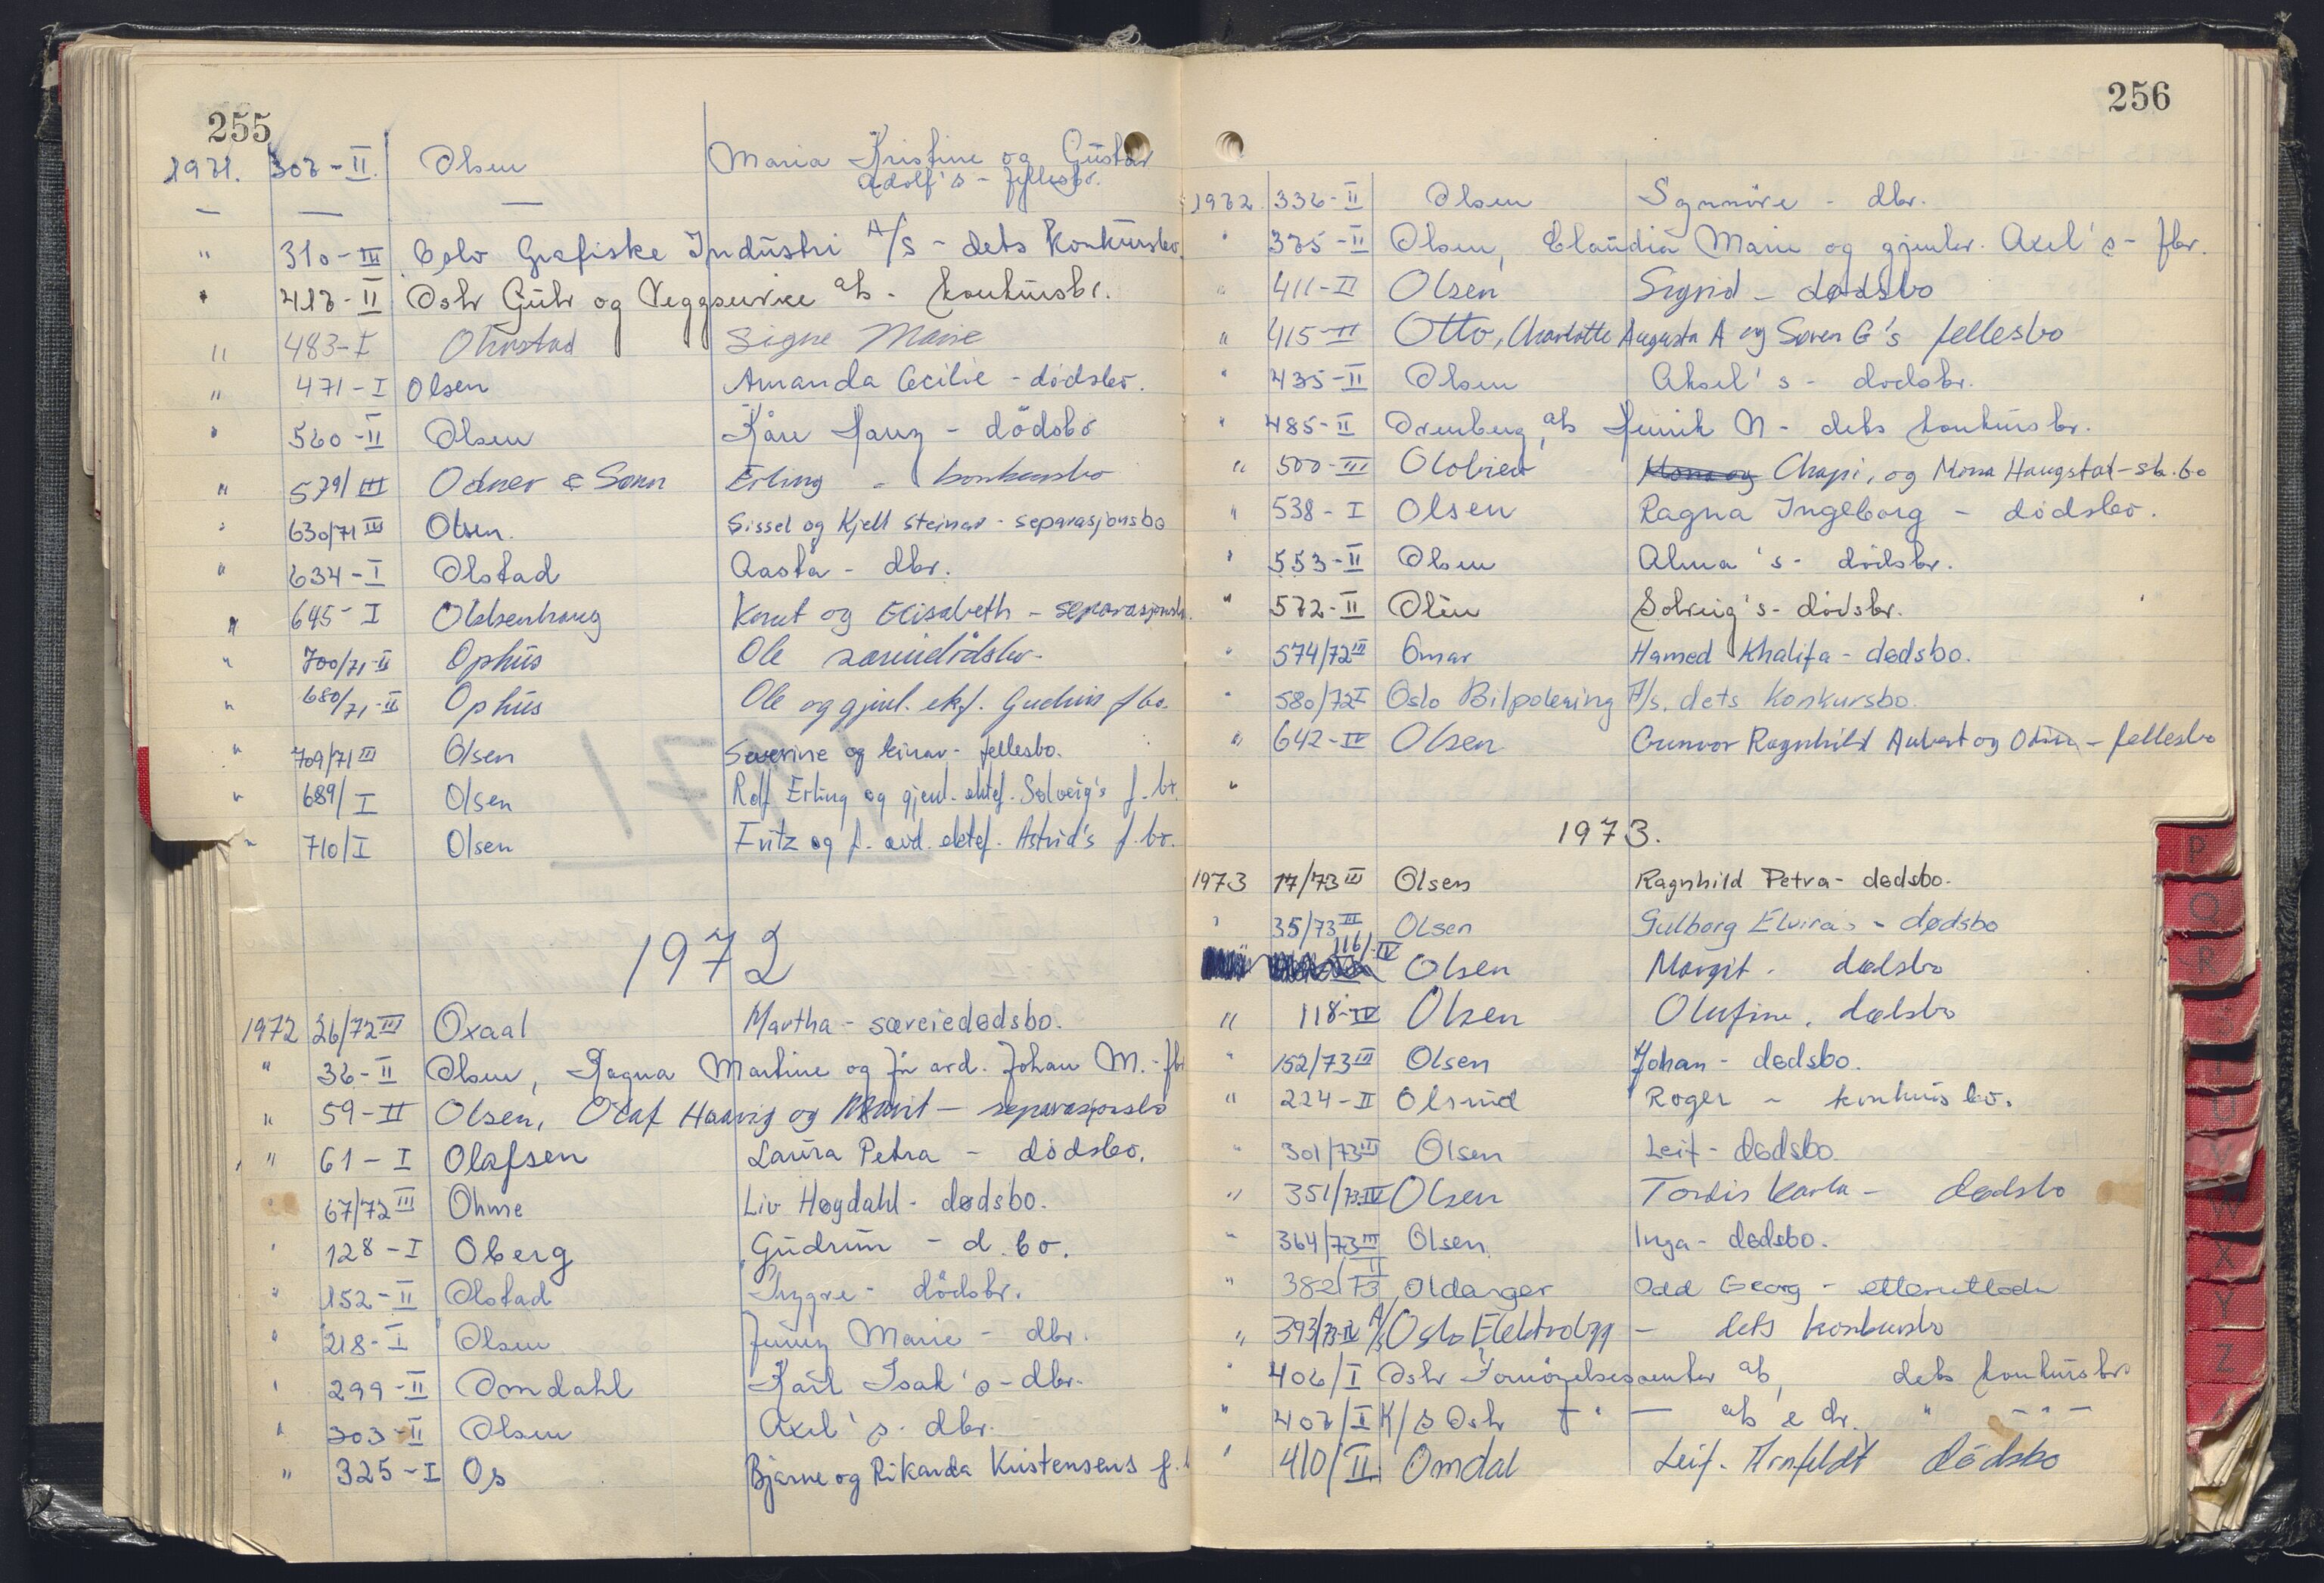 255
1971. 307-II. Olsen Maria Kristine og Gustav
Adolf's - fellesbo.
— — —
" 310-III Oslo Grafiske Industri A/S - dets Konkursbo.
" 417-II Oslo Gulv og Veggservice a/s - konkursbo.
" 483-I Ohnstad Signe Marie
" 471-I Olsen Amanda Cecilie - dødsbo.
" 560-II Olsen Kåre Hany - dødsbo
" 579/III Odner & Sønn Erling - konkursbo
" 630/71 III Olsen. Sissel og Kjell Steinar - separasjonsbo
" 634-I Olstad Aasta - dbo.
" 645-I Knut og Elisabeth - separasjonsb.
" 700/71-II Ophus Ole særeiedødsbo-
" 680/71-II Ophus Ole og gjenl. ekf. Gudrun f bo.
" 709/71 III Olsen Severine og Einar - fellesbo.
" 689/I Olsen Rolf Erling og gjenl. ektef. Solveig's f. bo.
" 710/I Olsen Fritz og f. avd. ektef. Astrid's f. bo.
1972
1972 26/72 III Oxaal Martha - særeiedødsbo.
" 36-II Olsen, Ragna Martine og før avd. Johan M. - fbo
" 59-II Olsen, Olaf Haavig og Marit - separasjonsbo
" 61-I Olafsen Laura Petra - dødsbo.
" 67/72 III Ohme Liv Høgdahl - dødsbo.
" 128-I Oberg Gudrun - d. bo.
" 152-II Olstad Trygve - dødsbo.
" 218-I Olsen Jenny Marie - dbo.
" 299-II Omdahl Karl Isak's - dbo.
" 303-II Olsen Axel's - dbo.
" 325-I Os Bjarne og Rikarda Kristensens f.
256
1972 336-II Olsen Synnøve - dbo.
" 375-II Olsen, Claudia Marie og gjenlev. Axel's - fbo.
" 411-II Olsen Sigrid - dødsbo
" 415-II Otto, Charlotte Augusta A og Søren G's fellesbo
" 435-II Olsen Aksel's - dødsbo.
" 485-II Orenberg, a/s Henrik N - dets konkursbo.
" 500-III Mona og Chapi, og Mona Haugstad - sk. bo
" 538-I Olsen Ragna Ingeborg - dødsbo.
" 553-II Olsen Alma's - dødsbo.
" 572-II Olsen Solveig's - dødsbo.
" 574/72 III Omar Hamed Khalifa - dødsbo.
" 580/72 I Oslo Bilpolering A/s. dets Konkursbo.
" 642-IV Olsen Gunvor Ragnhild Aubert og Odin - fellesbo
"
1973.
1973 17/73 III Olsen Ragnhild Petra - dødsbo.
" 35/73 III Olsen Gulborg Elviras - dødsbo
116/-IV Olsen Margit - dødsbo
" 118-IV Olsen Olufine, dødsbo
" 152/73 III Olsen Johan - dødsbo.
" 224-II Olsrud Roger - konkursbo.
" 301/73 III Olsen Leif - dødsbo.
" 351/73-IV Olsen Tordis Karla - dødsbo
" 364/73 III Olsen Inga - dødsbo.
" 382/73 II Oldanger Odd Georg -
" 393/73-IV A/s Oslo Elektrobygg - dets konkursbo
" 406/I Oslo Fornøyelsessenter a/s, dets konkursbo
" 407/I K/S Oslo — " — a/s & Co. " — " —
" 410/II Omdal Leif Arnfeldt dødsbo
P
Q
R
T
U
V
W
X
Y
Z